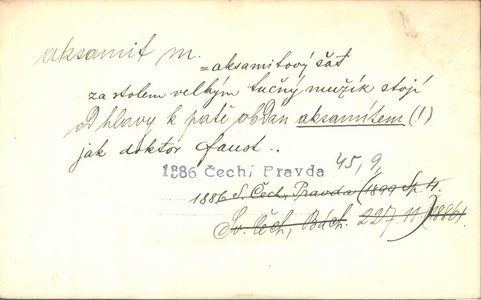 aksamit m.
= aksamitový šat
za stolem velkým tučný mužík stojí
od hlavy k patě obdán aksamitem (!)
jak doktor Faust ..
1886 Čech, Pravda 45, 9,
1886 S. Čech, Pravda (1899 Sp. 4.
Sv. Čech, Básn. 227, 11) (1886)